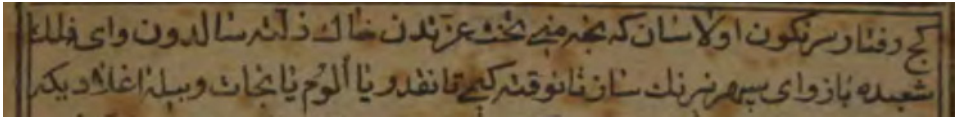 كج رفتار سرنكون اولاسان كه نجه منى تخت عزتدن خاك ذلته سالدون واى فلك
شعبده باز واى سپهر نيرنك ساز تا نوقته كيمى تا نقدر يا ألوم يا نجات وبيله اغلادیكه